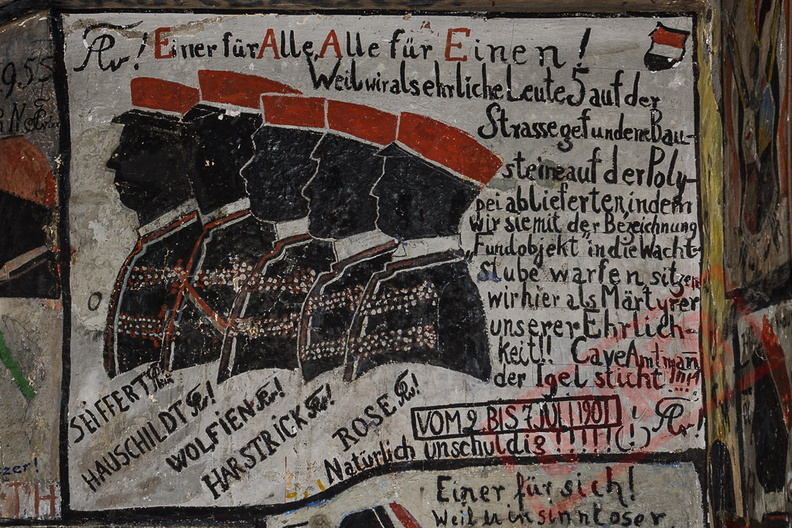 Einer für Alle, Alle für Einen!
Weil wir als ehrliche Leute 5 auf der
Strasse gefundene Bau-
steine auf der Poly-
pei ablieferten, indem
wir sie mit der Bezeichnung
"Fundobjekt" in die Wacht-
stube warfen, sitzen
wir hier als Märtyrer
unserer Ehrlich-
keit!! Cave Amtmann
der Igel sticht ihn!
SEIFFERT
HAUSCHILDT
WOLFIEN
HARSTRICK
ROSE
VOM 2. BIS 7. JULI 1901
Natürlich unschuldig !!!!!(!)
1955
zer!
TH
Einer für sich!
Weil in sinnloser